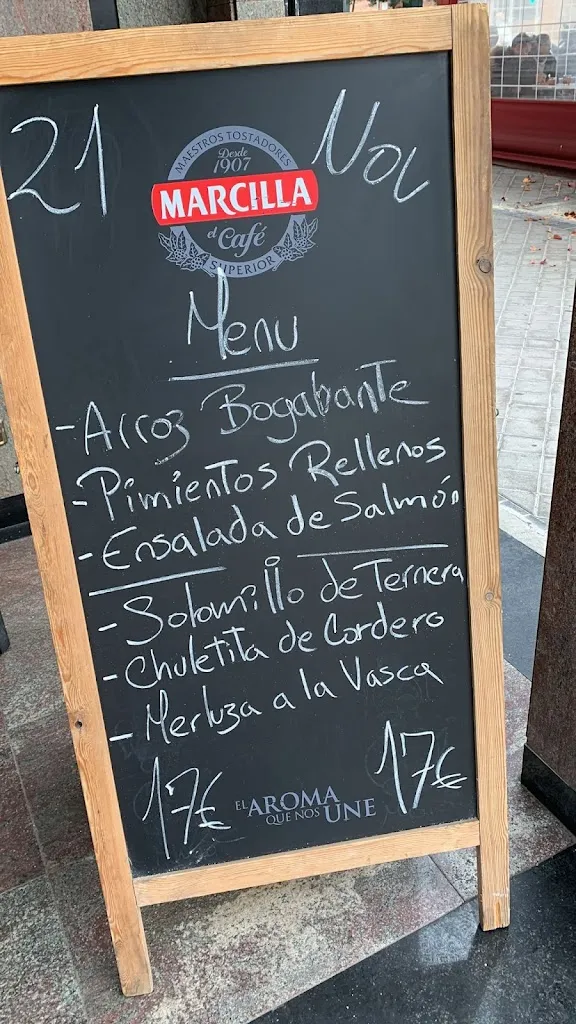 21 Nov
MAESTROS TOSTADORES
Desde
1907
MARCILLA
el Café
SUPERIOR
Menu
- Arroz Bogabante
- Pimientos Rellenos
- Ensalada de Salmón
- Solomillo de Ternera
- Chuletita de Cordero
- Merluza a la Vasca
17€ 17€
EL AROMA
QUE NOS UNE